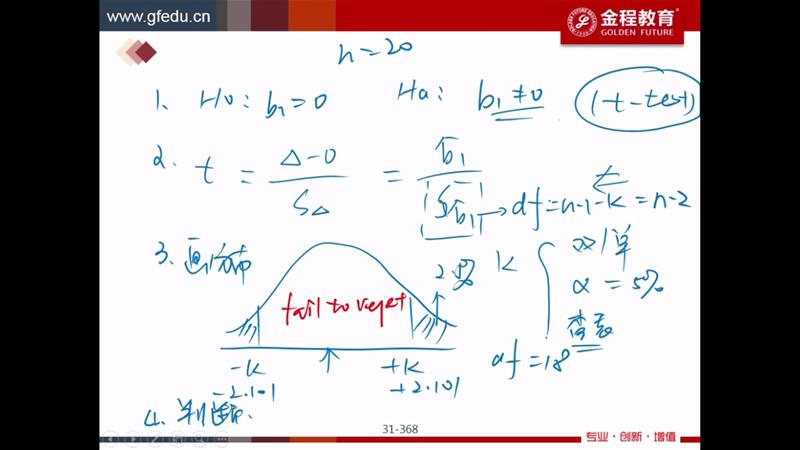 www.gfedu.cn
金程教育
GOLDEN FUTURE
n=20
1. H0: b1=0 Ha: b1≠0 (t-test)
2. t = Δ-0 / SΔ = b̂1 / Sb̂1 → df=n-1-k=n-2
t
3. 画分布 2.5% k 双/单
α = 5%
fail to reject
查表
df=18
-k +k
-2.101 +2.101
4. 判断.
31-368
专业·创新·增值